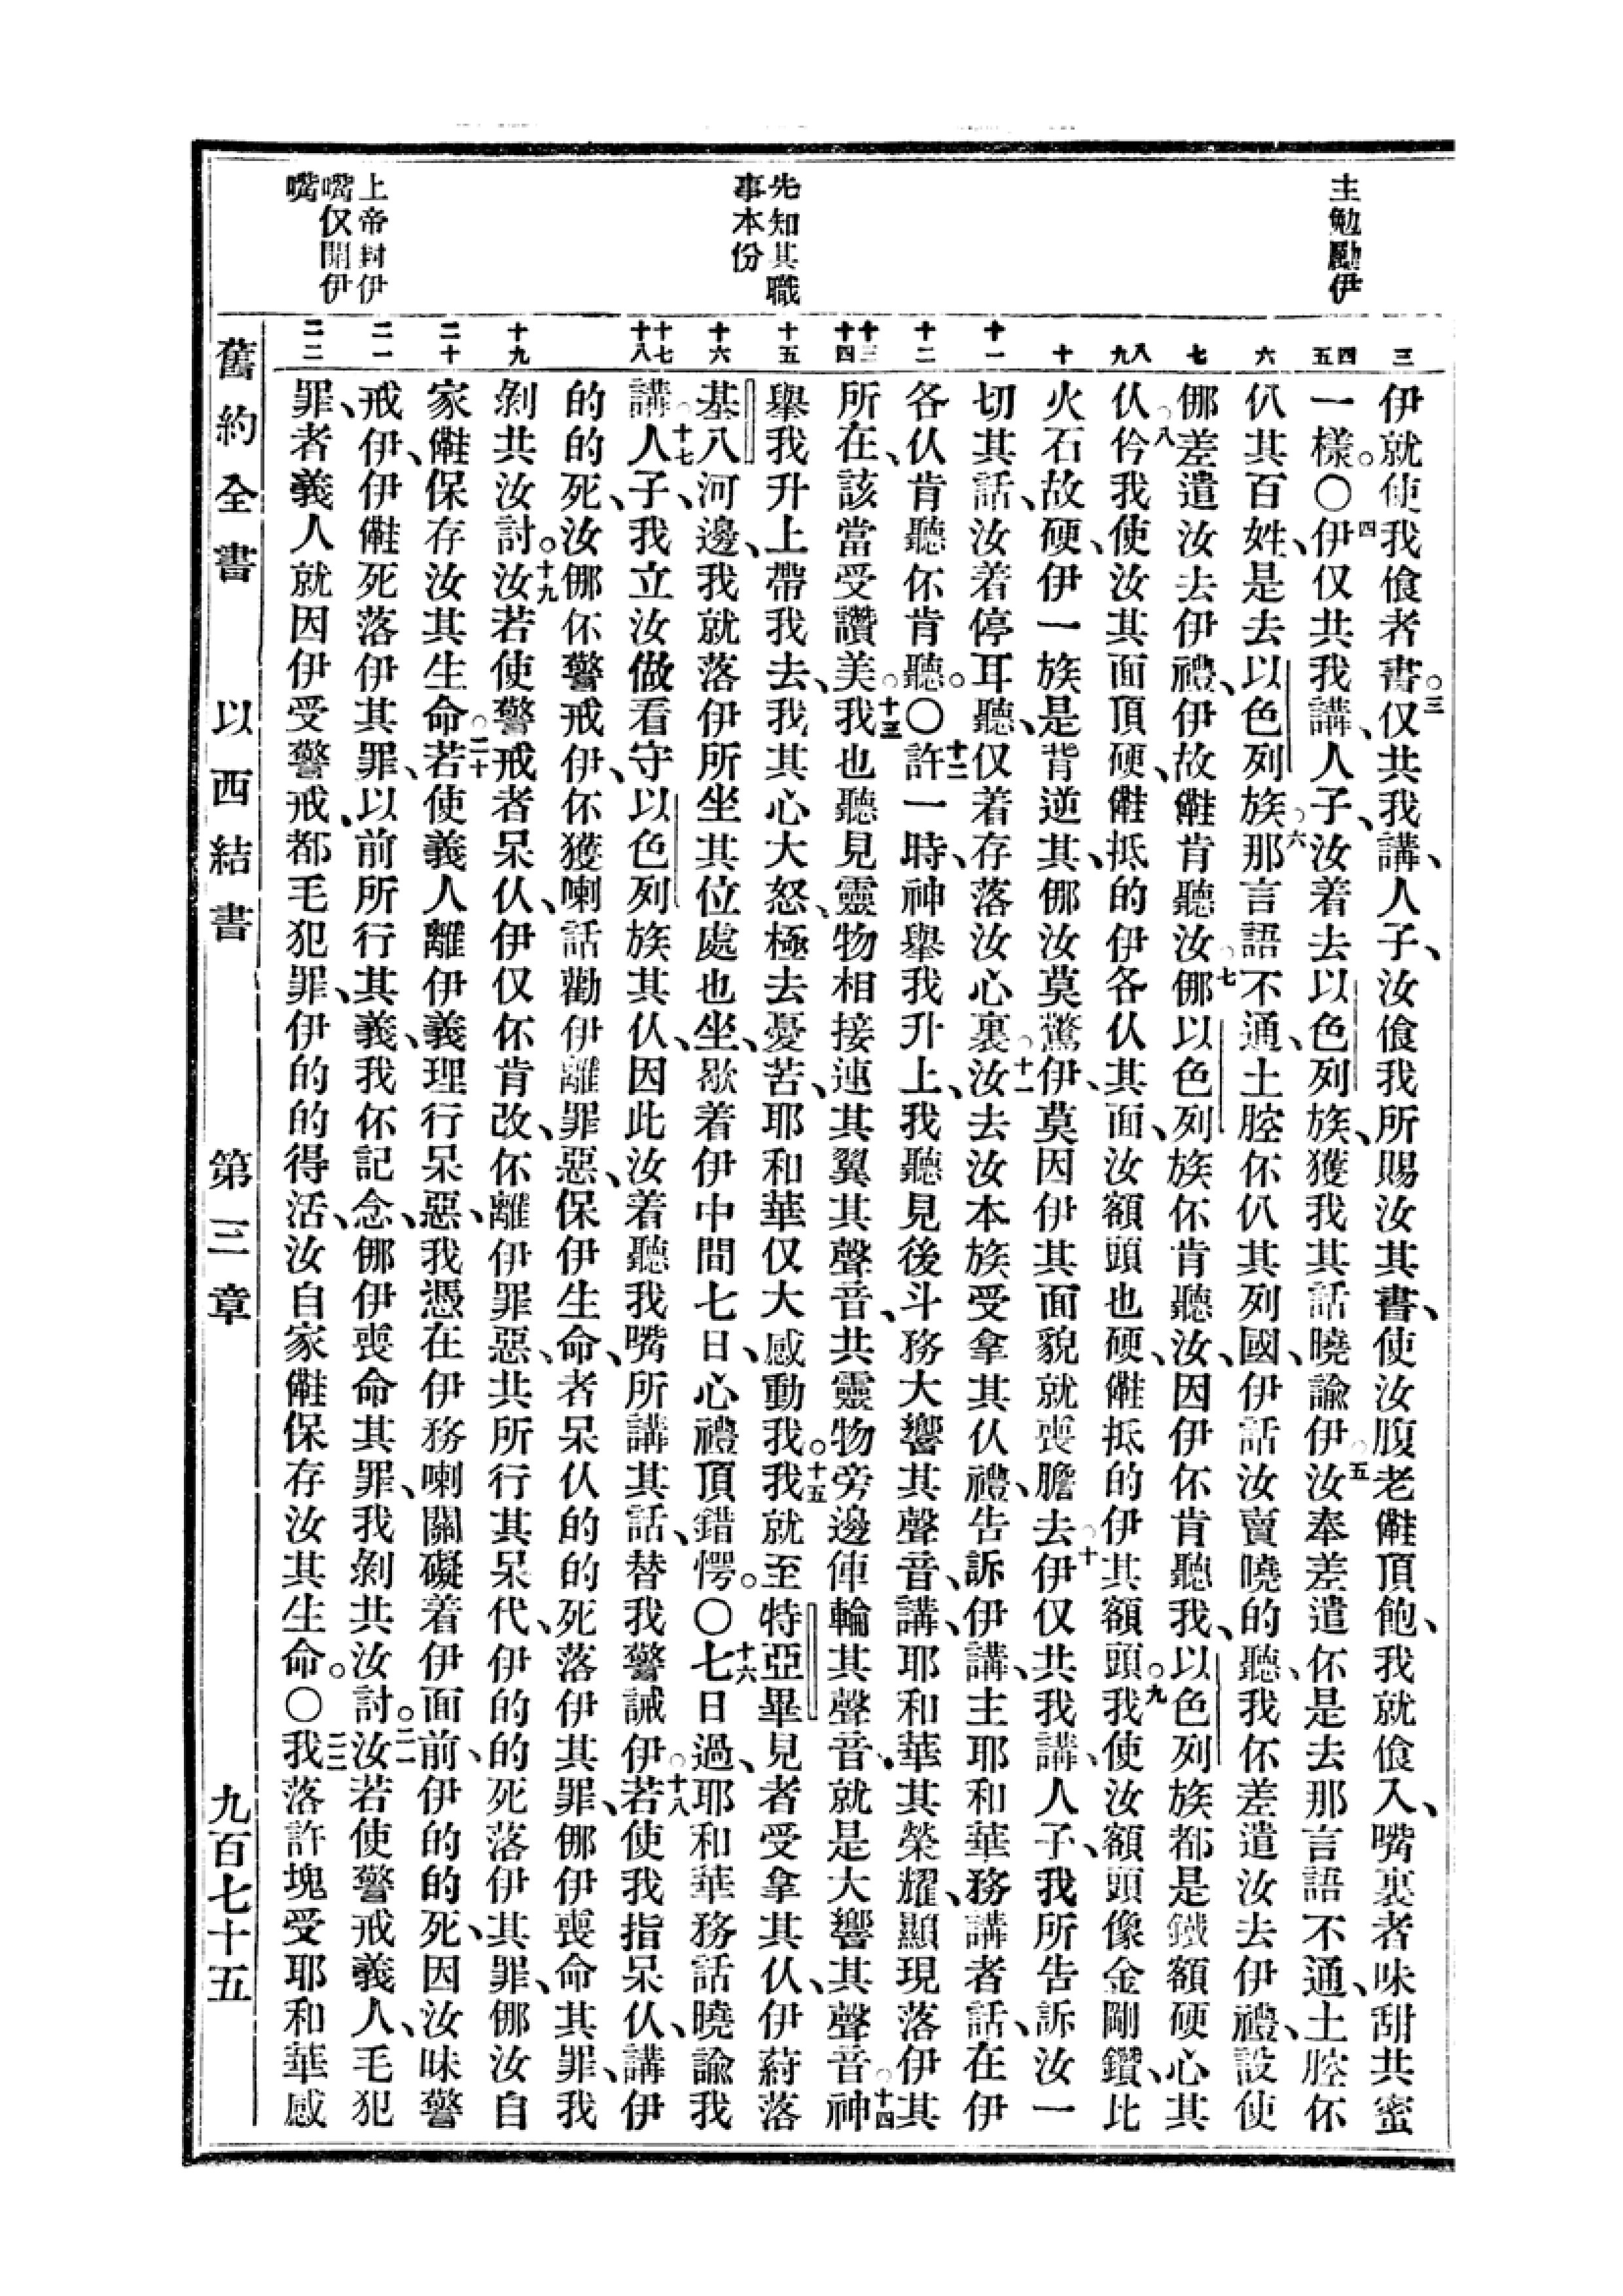 主勉勵伊
先知其職
事本份
上帝封伊
嘴仅開伊
嘴
三
四
五
六
七
八
九
十
十一
十二
十三
十四
十五
十六
十七
十八
十九
二十
二一
二二
伊就使我飡者書。三仅共我講、人子、汝飡我所賜汝其書、使汝腹老頂飽、我就飡入、嘴裏者味甜共蜜
一樣。〇四伊仅共我講、人子、汝着去以色列族、獲我其話曉諭伊。五汝奉差遣伓是去那言語不通、土腔伓
仈其百姓、是去以色列族。六那言語不通、土腔伓仈其列國、伊話汝賣曉的聽、我伓差遣汝去伊禮、設使
㑚差遣汝去伊禮、伊故肯聽汝。七㑚以色列族伓肯聽汝、因伊伓肯聽我、以色列族都是鐵額硬心其
仈。八仱我使汝其面頂硬、抵的伊各仈其面、汝額頭也硬、抵的伊其額頭。九我使汝額頭像金剛鑽、比
火石故硬、伊一族是背逆其、㑚汝莫驚伊、莫因伊其面貌就喪膽去。十伊仅共我講、人子、我所告訴汝一
切其話、汝着停耳聽、仅着存落汝心裏。十一汝去汝本族受拿其仈禮、告訴伊講、主耶和華務講者話、在伊
各仈肯聽伓肯聽。〇十二許一時、神舉我升上、我聽見後斗務大響其聲音、講、耶和華其榮耀、顯現落伊其
所在、該當受讚美。十三我也聽見靈物相接連其翼其聲音、共靈物旁邊俥輪其聲音、就是大響其聲音。十四神
舉我升上帶我去、我其心大怒、極去憂苦、耶和華仅大感動我。十五我就至特亞畢見者受拿其仈、伊蒔落
基八河邊、我就落伊所坐其位處也坐、坐歇着伊中間七日、心禮頂錯愕。〇十六七日過、耶和華務話曉諭我
講。十七人子、我立汝做看守以色列族其仈、因此汝着聽我嘴所講其話、替我警誡伊。十八若使我指呆仈、講伊
的的死、汝㑚伓警戒伊、伓獲喇話勸伊離罪惡、保伊生命、者呆仈的的死落伊其罪、㑚伊喪命其罪、我
剝共汝討。十九汝若使警戒者呆仈、伊仅伓肯改、伓離伊罪惡、共所行其呆代、伊的的死落伊其罪、㑚汝自
家保存汝其生命。二十若使義人離伊義理行呆惡、我憑在伊務喇關礙着伊面前、伊的的死、因汝味警
戒伊、伊死落伊其罪、以前所行其義、我伓記念、㑚伊喪命其罪、我剝共汝討。二一汝若使警戒義人、毛犯
罪、者義人就因伊受警戒、都毛犯罪、伊的的得活、汝自家保存汝其生命。〇二二我落許塊受耶和華感
舊約全書　以西結書　第三章　九百七十五